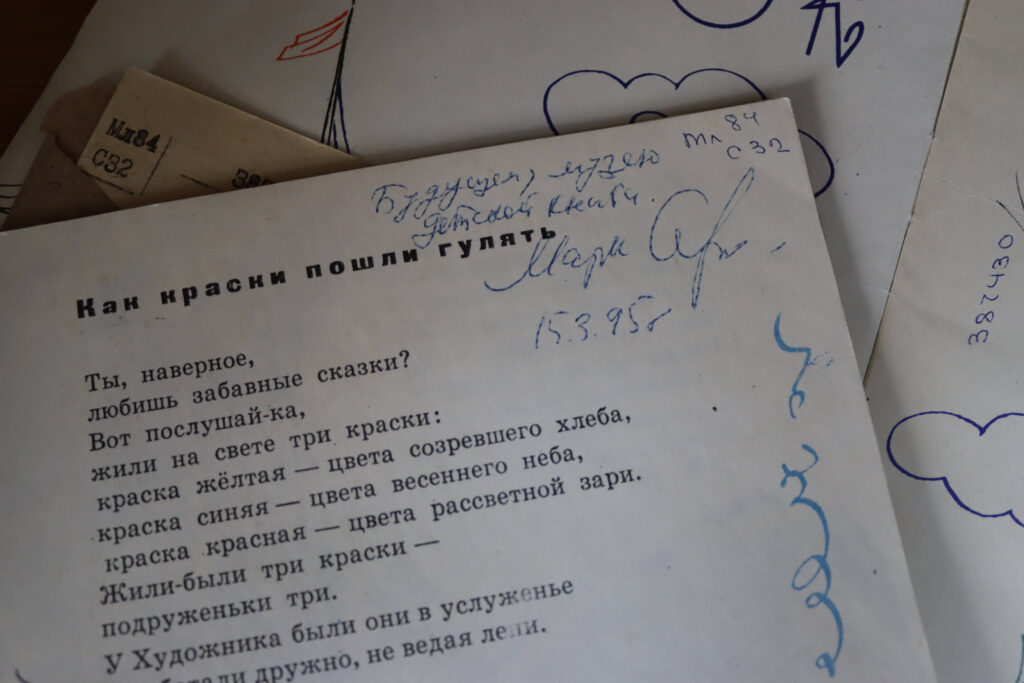 Мл84
С32
Мл 84
С 32
Будущему музею
детской книги.
Марк
15.3.95г
Как краски пошли гулять
Ты, наверное,
любишь забавные сказки?
Вот послушай-ка,
жили на свете три краски:
краска жёлтая — цвета созревшего хлеба,
краска синяя — цвета весеннего неба,
краска красная — цвета рассветной зари.
Жили-были три краски —
подруженьки три.
У Художника были они в услуженье
дружно, не ведая лени.
387430